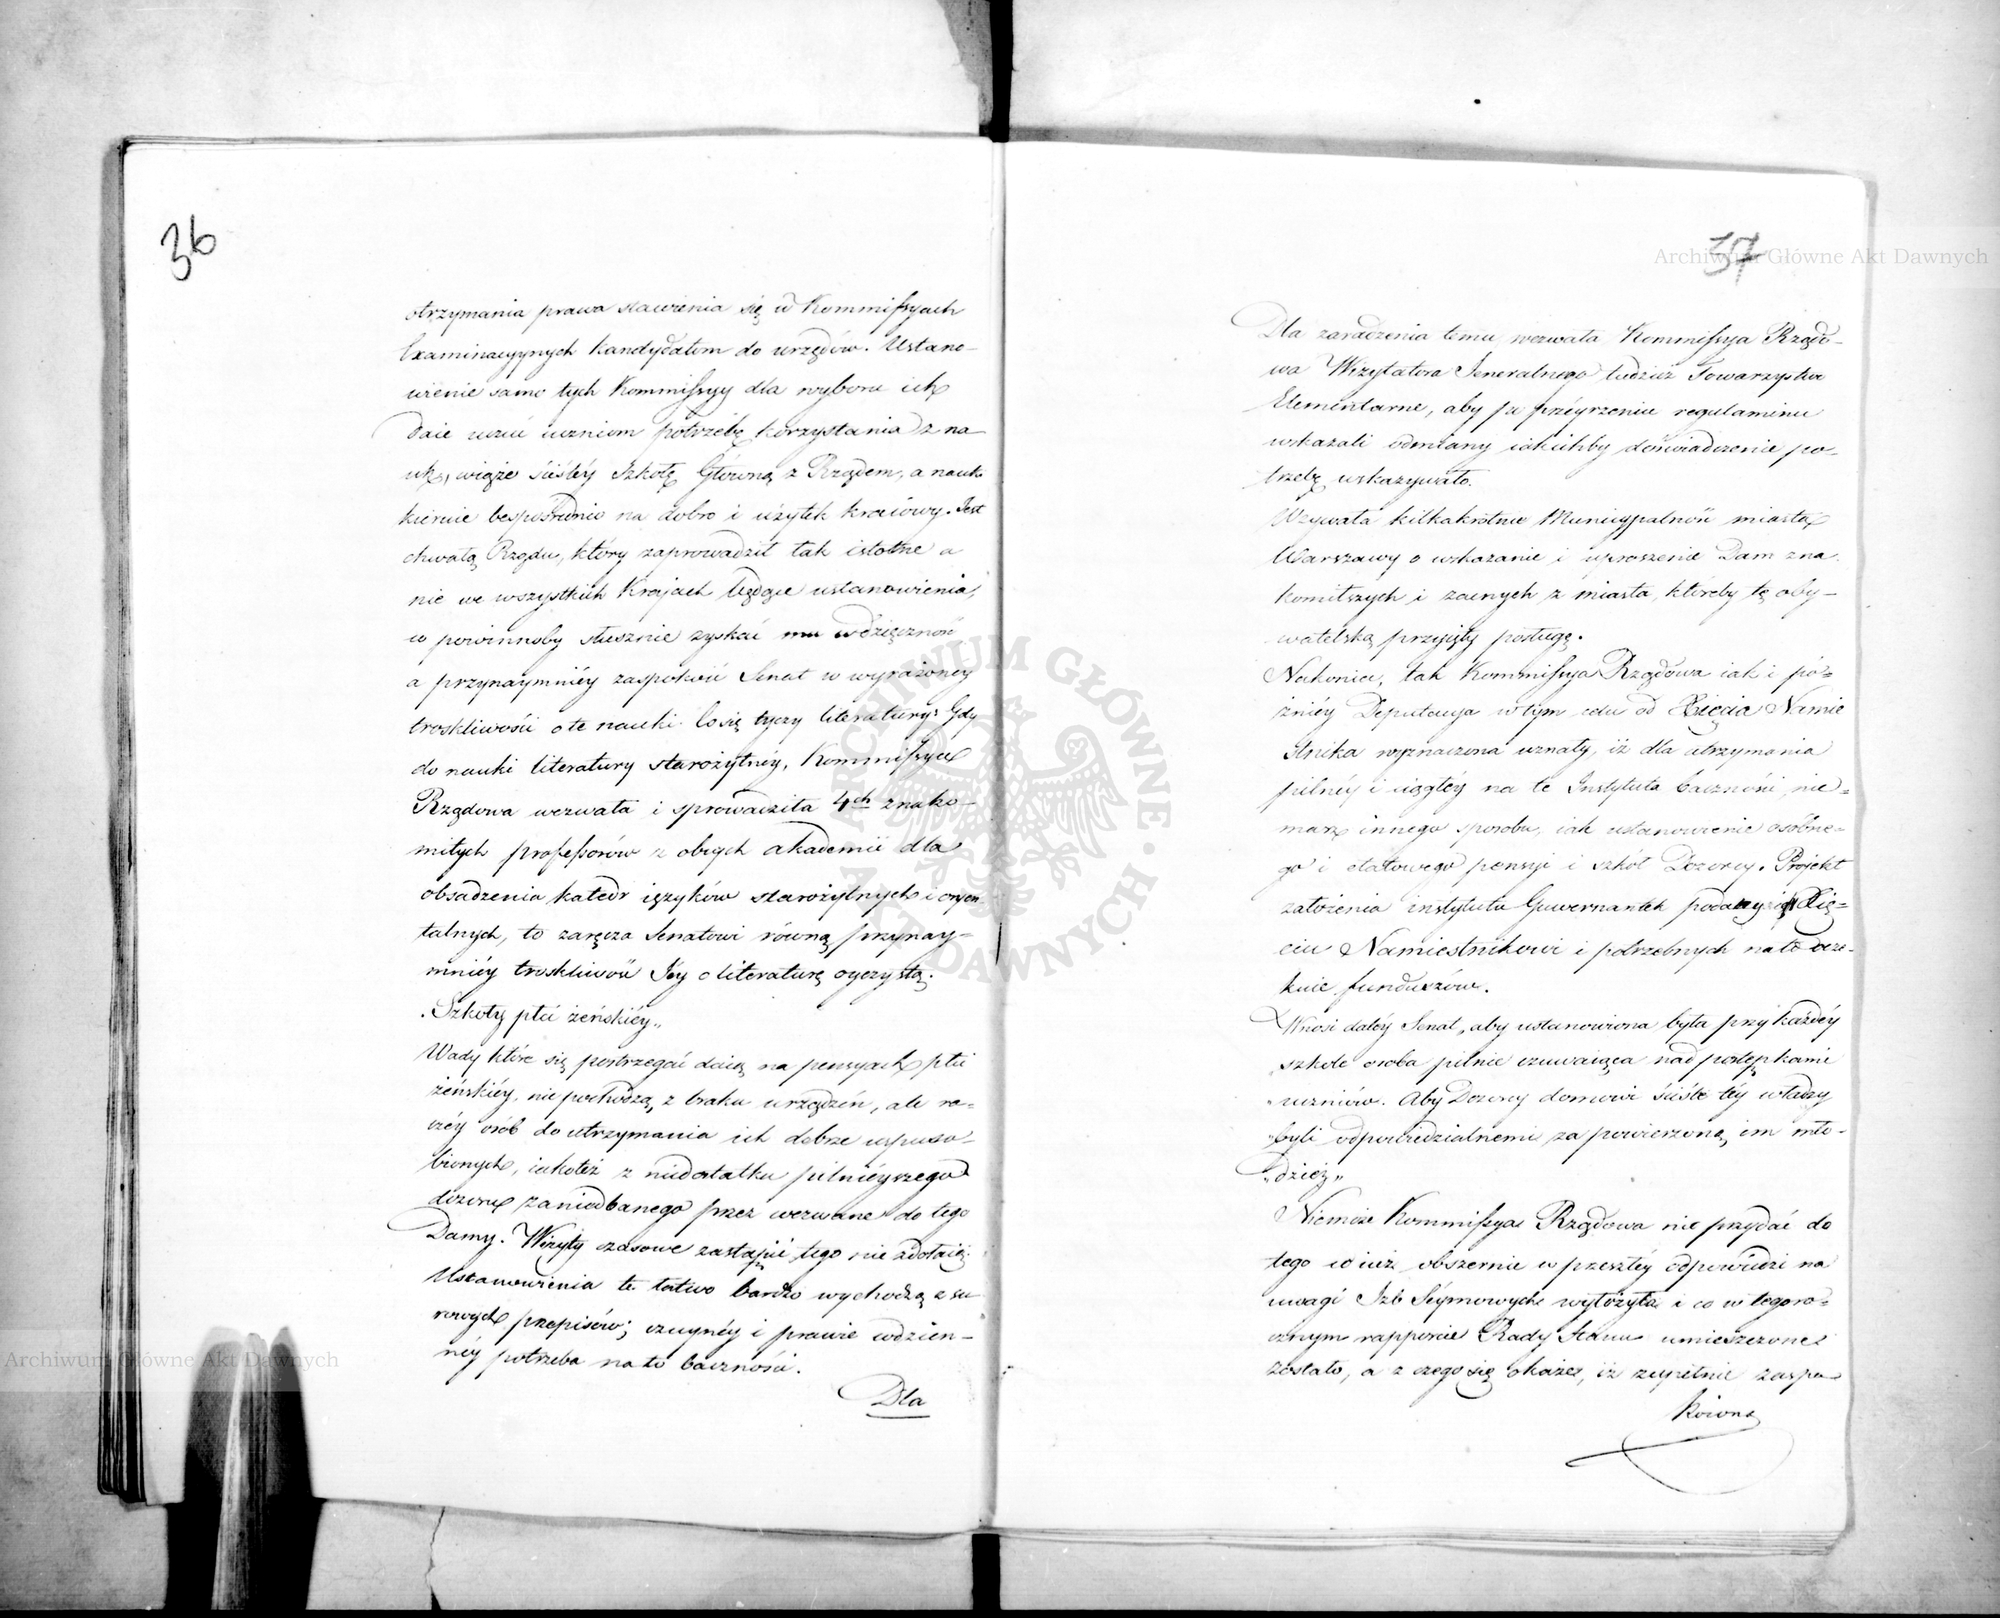 36
otrzymania prawa stawienia się w Kommissyach
Examinacyjnych Kandydatom do urzędów. Ustano-
wienie samo tych Kommissyy dla wyboru ich
daie uczuć uczniom potrzebę korzystania z na-
uk, wiąże ściśléy Szkołę Główną z Rządem, a nauk
kieruie bespośrednio na dobro i użytek kraiowy. Jest
chwałą Rządu, który zaprowadził tak istotne a
nie we wszystkich Krajach będące ustanowienia,
powinnoby słusznie zyskać mu wdzięczność
a przynaymniéy zaspokoić Senat w wyrażonéy
troskliwości o te nauki. Co się tyczy literatury: Gdy
do nauki literatury starożytnéy, Kommissya
Rządowa wezwała i sprowadziła 4ch znako-
mitych professorów z obcych akademii dla
obsadzenia katedr ięzyków starożytnych i oryen-
talnych, to zaręcza Senatowi równą przynay-
mniéy troskliwość Jéy o literaturę oyczystą.
„Szkoły płci żeńskiéy„
Wady które się postrzegać daią na pensyach płci
żeńskiéy, nie pochodzą z braku urządzeń, ale ra-
czéy osób do utrzymania ich dobrze usposo-
bionych, iakoteż z niedostatku pilnieyszego
dozoru zaniedbanego przez wezwane do tego
Damy. Wizyty czasowe zastąpić tego nie zdołaią.
Ustanowienia te łatwo bardzo wychodzą z su-
rowych przepisów; czuynéy i prawie codzien-
néy potrzeba na to baczności.
Dla
37
Dla zaradzenia temu wezwała Kommissya Rządo-
wa Wizytatora Jeneralnego tudzież Towarzystwo
Elementarne, aby po przéyrzeniu regulaminu
wskazali odmiany iakichby doświadczenie po-
trzebę wskazywało.
Wzywała kilkakrotnie Municypalność miasta
Warszawy o wskazanie i uproszenie Dam zna-
komitszych i zacnych z miasta, któreby tę oby-
watelską przyięły posługę.
Nakoniec, tak Kommissya Rządowa iak i pó-
źniéy Deputacya w tym celu od Xięcia Namie
stnika wyznaczona uznały, iż dla utrzymania
pilnéy i ciągłéy na te Instytuta baczności, nie-
masz innego sposobu, iak ustanowienie osobne-
go i etatowego pensyi i szkół Dozorcy. Projekt
założenia instytutu Guwernantek podany Xię-
ciu Namiestnikowi i potrzebnych na to ocze-
kuie funduszów.
Wnosi daléy Senat „aby ustanowiona była przy każdéy
„szkole osoba pilnie czuwaiąca nad postępkami
„uczniów. Aby Dozorcy domowi ściśle téy władzy
„byli odpowiedzialnemi za powierzoną im mło-
„dzież„
Niemoże Kommissya Rządowa nic przydać do
tego co iuż obszernie w przeszłéy odpowiedzi na
uwagi Izb Séymowych wyłożyła i co w tegoro-
cznym rapporcie Rady Stanu umieszczone
zostało, a z czego się okaże, iż zupełnie zaspo-
koiona
Archiwum Główne Akt Dawnych
Archiwum Główne Akt Dawnych
ARCHIWUM GŁÓWNE AKT DAWNYCH